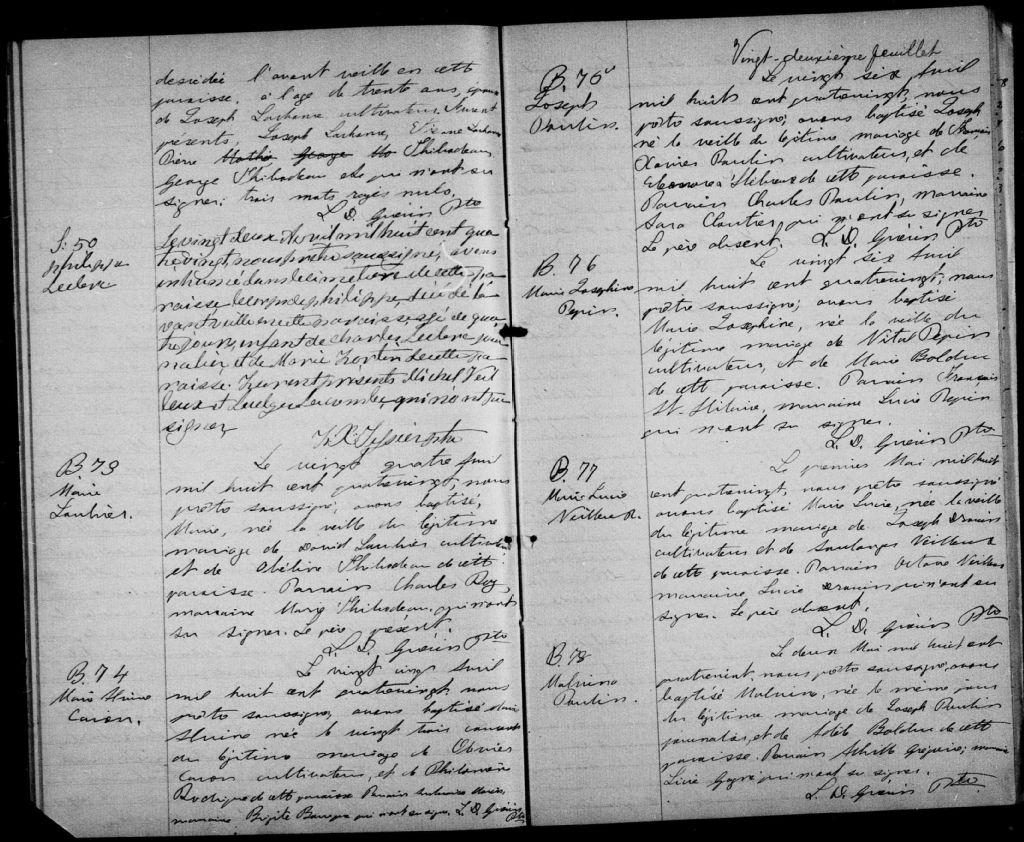 décédée l'avant veille en cette
paroisse, à l'age de trente ans, épouse
de Joseph Lachance cultivateur. Furent
présents, Joseph Lachance, Pierre Lachance
Pierre Mathie George Thibodeau
George Thibodeau etc qui n'ont su
signer; trois mots rayés nuls,
L. D. Guérin Ptre
S. 50
philippe
Leclerc
Le vingt deux Avril mil huit cent qua
tre vingt, nous prêtre soussigné, avons
inhumé dans le cimetière de cette pa
roisse le corps de philippe, décédé l'a
vant veille en cette paroisse, agé de qua
tre jours, enfant de charles Leclerc jour
nalier et de Marie de cette pa
roisse. Furent présents Michel Veil
leux et Lacombe, qui n'ont su
signer,
Ptre
B. 73
Marie
Le vingt quatre Avril
mil huit cent quatrevingt, nous
prêtre soussigné, avons baptisé,
Marie, née la veille du légitime
mariage de David cultivateur
et de Thibodeau de cette
paroisse. Parrain Charles Roy
marraine Marie Thibodeau, qui n'ont
su signer. Le père présent.
L. D. Guérin Ptre
B. 74
Marie
Caron.
Le vingt cinq Avril
mil huit cent quatrevingt, nous
prêtre soussigné, avons baptisé Marie
née le vingt trois courant
du légitime mariage de
Caron cultivateur, et de Philomène
Rodrigue de cette paroisse Parrain
marraine Brigite qui n'ont su signer. L. D. Guérin Ptre
Vingt-deuxième feuillet
B. 75
Joseph
Paulin.
Le vingt six Avril
mil huit cent quatrevingt, nous
prêtre soussigné, avons baptisé Joseph
né la veille du légitime mariage de François
Xavier Paulin cultivateur, et de
Eleonore St Hilaire de cette paroisse.
Parrain Charles Paulin, marraine
Sara Cloutier, qui n'ont su signer
Le père absent. L. D. Guérin Ptre
B. 76
Marie Josephine
Pepin.
Le vingt six Avril
mil huit cent quatrevingt, nous
prêtre soussigné, avons baptisé
Marie Josephine, née la veille du
légitime mariage de Vital Pepin
cultivateur, et de Marie Bolduc
de cette paroisse. Parrain François
St. Hilaire, marraine Lucie Pepin
qui n'ont su signer.
L. D. Guérin Ptre
B. 77
Marie Lucie
Veilleux.
Le premier Mai mil huit
cent quatrevingt, nous prêtre soussigné
avons baptisé Marie Lucie, née la veille
du légitime mariage de Joseph Drouin
cultivateur et de Soulanges Veilleux
de cette paroisse. Parrain Octave Veilleux
marraine Lucie Drouin qui n'ont su
signer. Le père absent.
L. D. Guérin Ptre
B. 78
Malvina
Paulin.
Le deux Mai mil huit cent
quatrevingt, nous prêtre soussigné, avons
baptisé Malvina, née le même jour
du légitime mariage de Joseph Paulin
journalier, et de Adèle Bolduc de cette
paroisse. Parrain Achille Grégoire, marraine
Lucie qui n'ont su signer.
L. D. Guérin Ptre